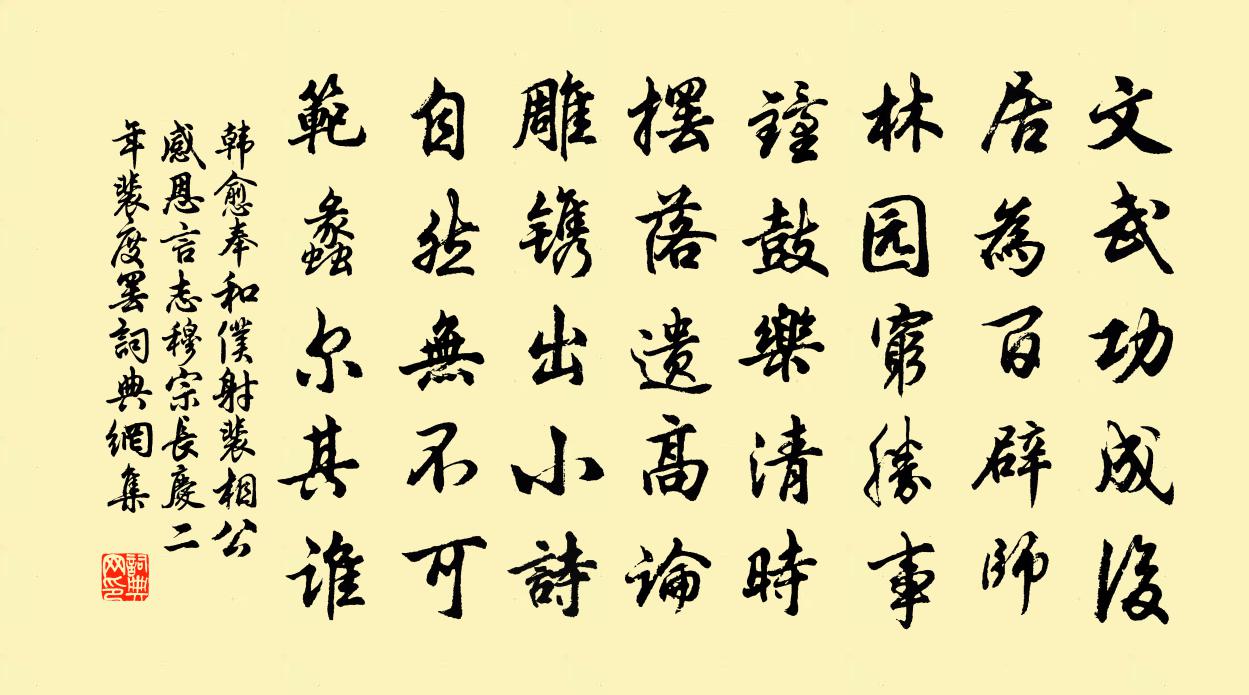 文武功成後
居為百辟師
林园窮勝事
鐘鼓樂清時
擺落遺高論
雕鐫出小詩
自然無不可
範蠡尔其誰
韩愈奉和僕射裴相公
感恩言志穆宗長慶二
年裴度罷詞典網集
詞典网印